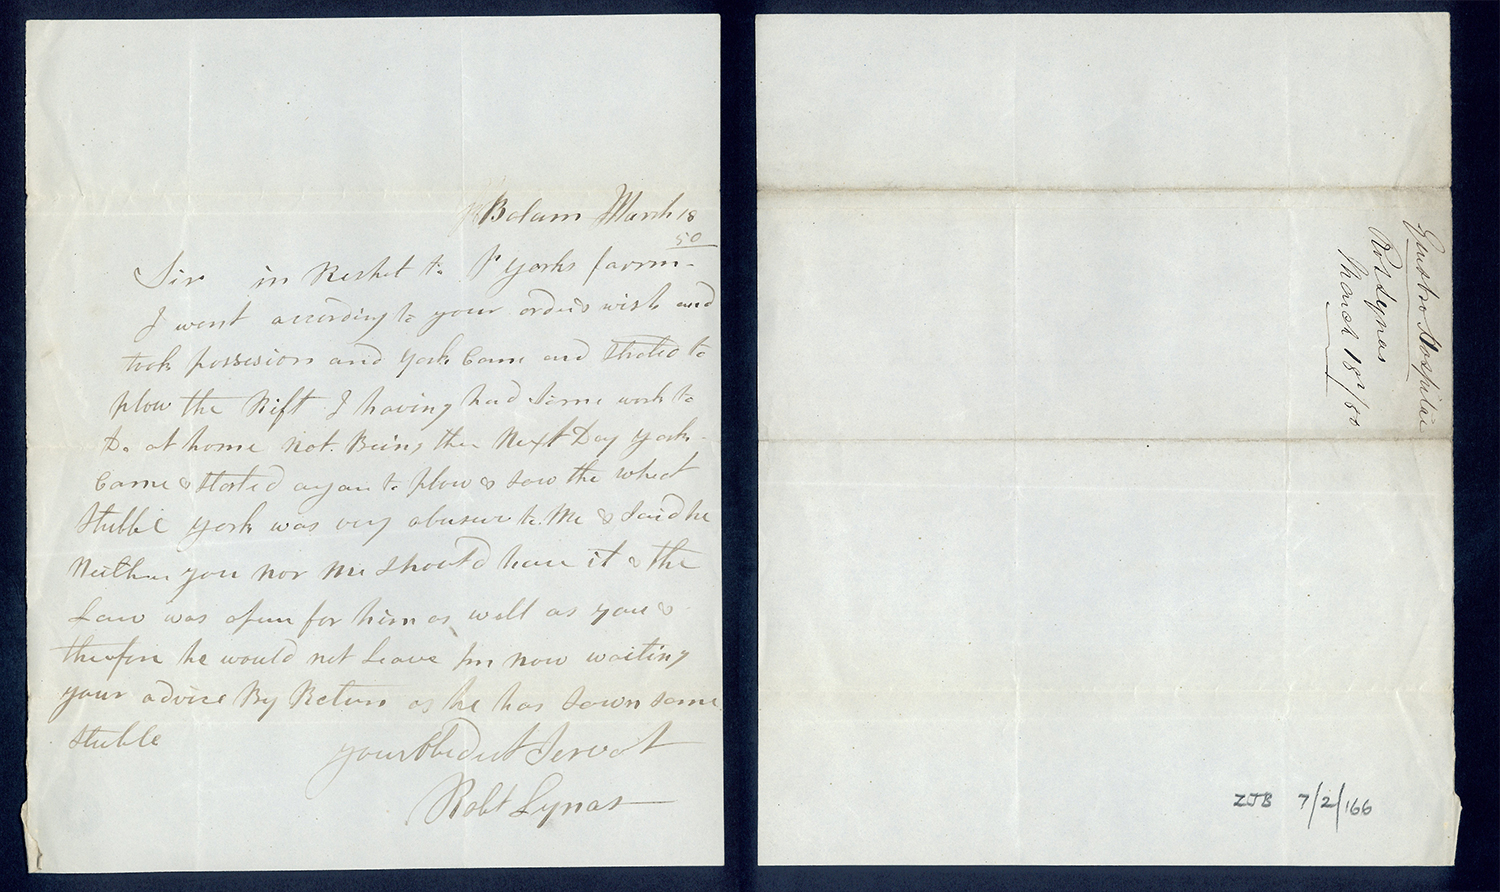 Bolam March 18
50
Sir in Reshet to P yorks farm-
I went according to your orders wish and
took possesion and york Came and Started to
plow the Rift I having had Some work to
Do at home not Being ther Next Day york
Came & Started agan to plow & sow the wheat
Stubble york was very abusive to Me & Said he
Neither you nor Me Should have it & the
Law was open for him as well as you &
therefore he would not Leave Im now waiting
your advice By Return as he has Sown some
Stuble
your Obedent Servot
Robt Lynas
Greatham Hospital
Robt Lynas
March 18th/50
ZJB 7/2/166